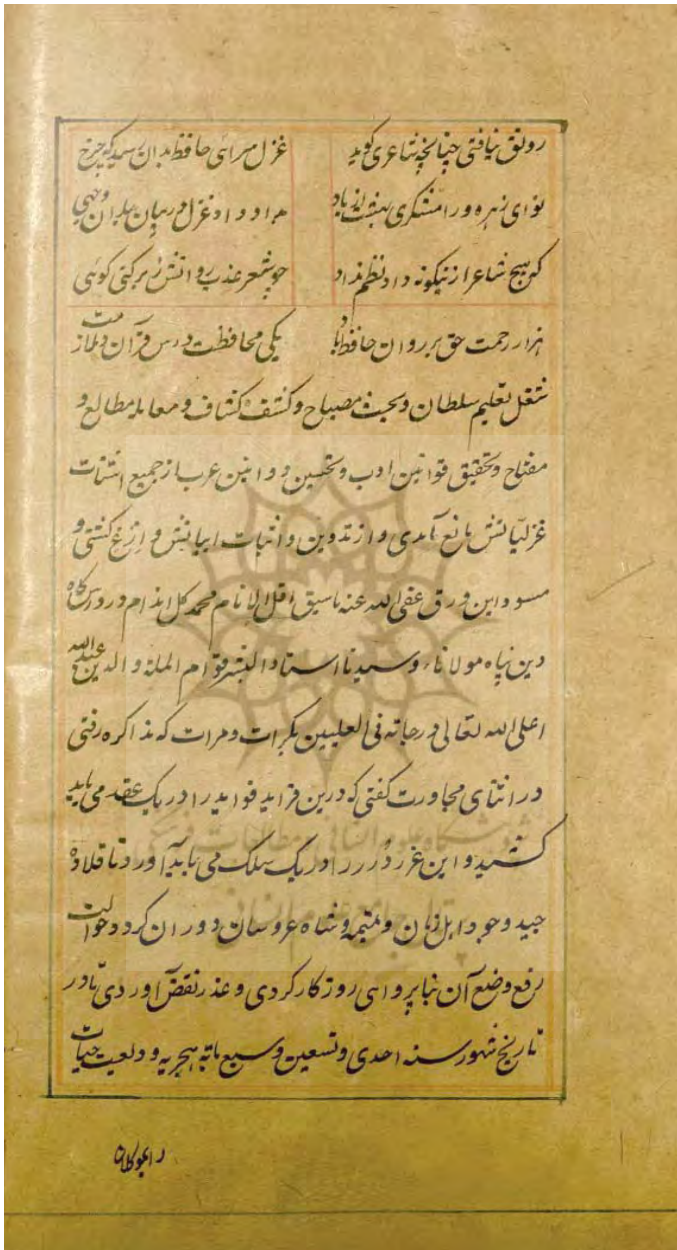 رونق نیافتی چنانچه شاعری گوید غزل سرائی حافظ بدان رسید که چرخ
نوای زهره و رامشگری بهشت از یاد بداد داد غزل در بیان بدان وجهی
که هیچ شاعر ازینگونه داد نظم نداد چو شعر عذب روانش ز بر کنی گوئی
هزار رحمت حق بر روان حافظ باد یکی محافظت درس قرآن و ملازمت
شغل تعلیم سلطان و بحث مصباح و کشف کشاف و مطالع و
مفتاح و تحقیق قوانین ادب و تحسین دواوین عرب از جمیع اشتات
غزلیاتش مانع آمدی و از تدوین و اثبات ابیاتش وازع گشتی و
مسود این ورق عفی الله عنه ماسبق اقل الانام محمد گل اندام در درسگاه
دین پناه مولانا و سیدنا استاد البشر قوام الملة و الدین عبدالله
اعلی الله تعالی درجاته فی العلیین بکرات و مرات که بمذاکره رفتی
در اثنای محاورت گفتی که درین فراید فواید را در یک عقد می باید
کشید و این غرر درر را در یک سلک می باید آورد تا قلاده
جید وجود اهل زمان و تمیمه وشاه عروسان دوران گردد و حوالت
رفع وضع آن بنا بر روزگار کردی و عذر نقض آوردی تا در
تاریخ شهور سنه احدی و تسعین و سبع مائه هجریه ودیعت حیات